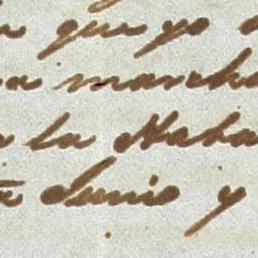 que yo
marcha
la Haba
Junio y